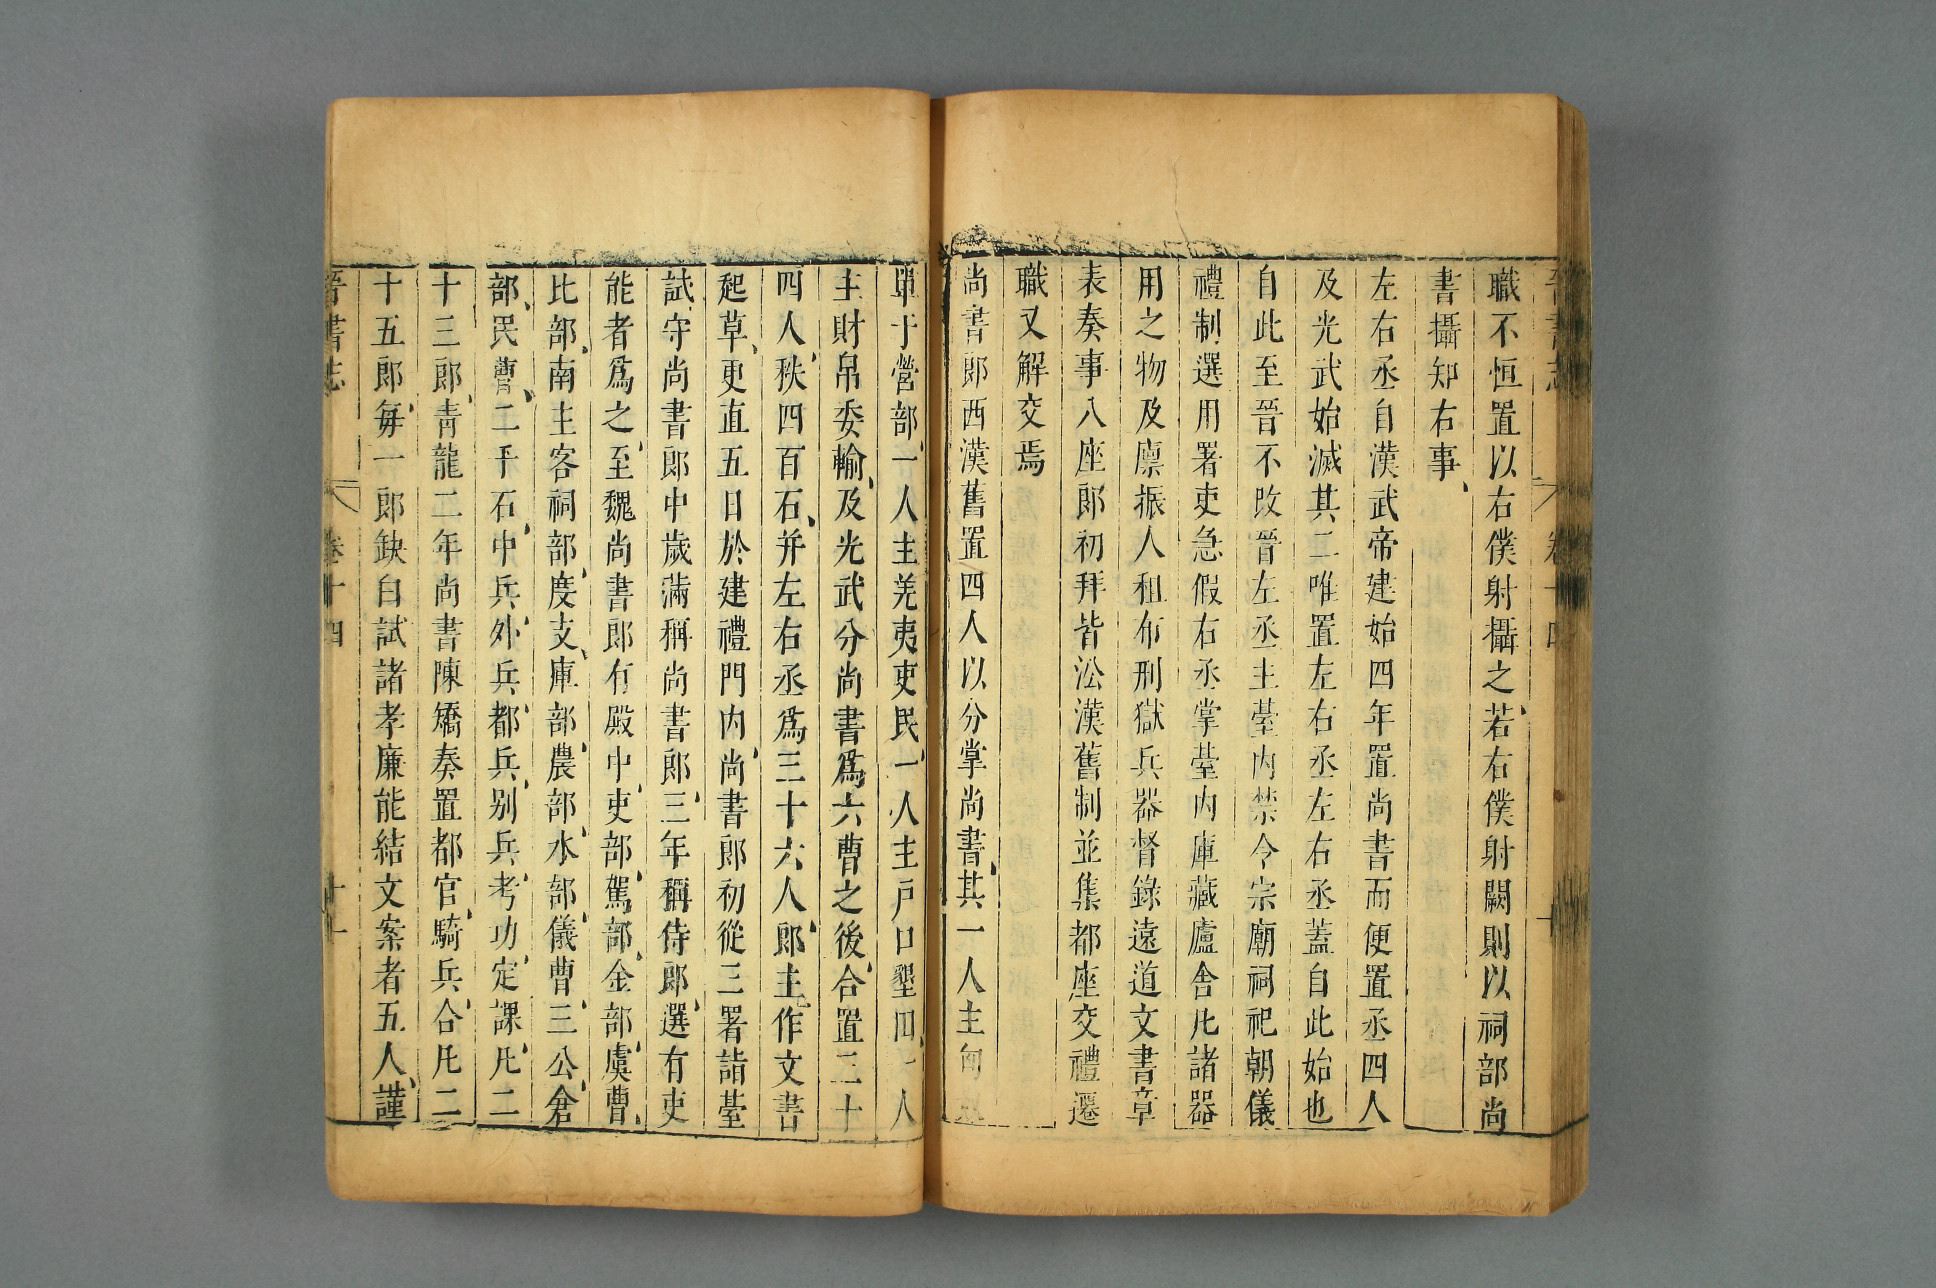 職不恒置以右僕射攝之若右僕射闕則以祠部尚
書攝知右事
左右丞自漢武帝建始四年置尚書而便置丞四人
及光武始減其二唯置左右丞左右丞蓋自此始也
自此至晉不改晉左丞主臺內禁令宗廟祠祀朝儀
禮制選用署吏急假右丞掌臺內庫藏廬舍凡諸器
用之物及廩振人租布刑獄兵器督錄遠道文書章
表奏事八座郎初拜皆沿漢舊制並集都座交禮遷
職又解交焉
尚書郎西漢舊置四人以分掌尚書其一人主匈
單于營部一人主羌夷吏民一人主戶口墾田一人
主財帛委輸及光武分尚書為六曹之後合置三十
四人秩四百石并左右丞為三十六人郎主作文書
起草更直五日於建禮門內尚書郎初從三署詣臺
試守尚書郎中歲滿稱尚書郎三年稱侍郎選有吏
能者為之至魏尚書郎有殿中吏部駕部金部虞曹
比部南主客祠部度支庫部農部水部儀曹三公倉
部民曹二千石中兵外兵都兵別兵考功定課凡二
十三郎青龍二年尚書陳矯奏置都官騎兵合凡二
十五郎每一郎缺白試諸孝廉能結文案者五人謹
晉書志 卷十四 十一